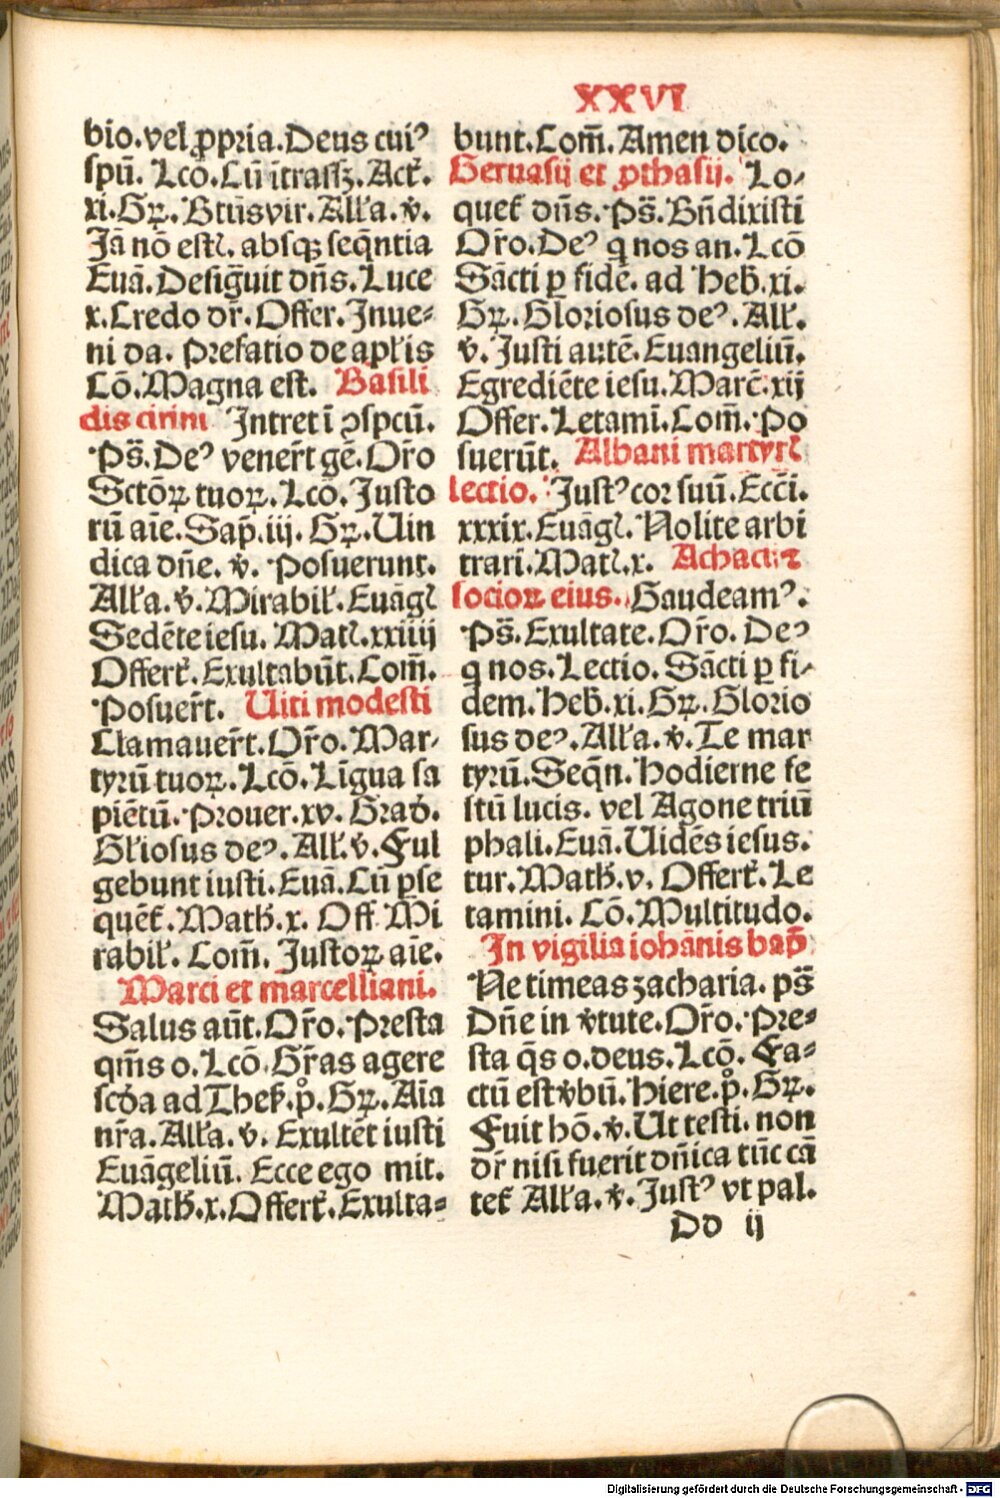 XXVI
bio.vel ꝓpria.Deus cuiꝰ
spū. Lcō.Cū ītrassꝫ.Act̄.
xi.Gꝝ.Btūsvir.Alľa.v̄.
Jā nō estl. absqꝫ seq̄ntia
Euā.Desig̃uit dñs.Luce
x.Credo dr̄.Offer.Jnue⸗
ni da. Prefatio de apľis
Cō.Magna est. Basili
dis cirini Jntret ī ↄspcū.
Ps̄.Deꝰ vener̄t gē.Or̄o
Sctōꝝ tuoꝝ.Lcō.Justo
rū aīe.Sap̄.iij.Gꝝ.Uin
dica dñe. v̄. Posuerunt.
Alľa.v̄.Mirabiľ.Euāgl
Sedēte iesu. Matl.xxiiij
Offert̄.Exultabūt.Com̄.
Posuer̄t. Uiti modesti
Clamauer̄t.Or̄o.Mar⸗
tyrū tuoꝝ.Lcō.Līgua sa
piētū.Prouer.xv.Grad̄.
Gľiosus deꝰ.Alľ.v̄.Ful
gebunt iusti.Euā.Cū ꝑse
quēt̄.Math̄.x. Off.Mi
rabiľ. Com̄. Justoꝝ aīe.
Marci et marcelliani.
Salus aūt.Or̄o.Presta
qm̄s o.Lcō.Gr̄as agere
scd̄a ad Thes̄.p̊.Gꝝ.Aīa
nr̄a.Alľa.v̄. Exultēt iusti
Euāgeliū. Ecce ego mit.
Math̄.x.Offert̄.Exulta⸗
bunt.Com̄.Amen dico.
Geruasij et ꝓthasij. Lo⸗
quet̄ dñs.Ps̄.Bn̄dixisti
Or̄o.Deꝰ q nos an.Lcō
Sācti ꝑ fidē. ad Heb̄.xi.
Gꝝ.Gloriosus deꝰ.Alľ.
v̄. Justi autē.Euangeliū.
Egrediēte iesu.Marc̄.xij
Offer.Letamī.Com̄.Po
suerūt. Albani martyrl
lectio. Justꝰ cor suū.Ecc̄i.
xxxix.Euāgl. Nolite arbi
trari.Matl.x. Achacij ⁊
socioꝝ eius. Gaudeamꝰ.
Ps̄.Exultate.Or̄o. Deꝰ
q nos.Lectio. Sācti ꝑ fi⸗
dem.Heb̄.xi.Gꝝ.Glorio
sus deꝰ.Alľa.v̄.Te mar
tyrū.Seq̄n.Hodierne fe
stū lucis. vel Agone triū
phali.Euā.Uidēs iesus.
tur.Math̄.v. Offert̄.Le
tamini. Cō.Multitudo.
Jn vigilia iohānis bap̄
Ne timeas zacharia. ps̄
Dñe in v̄tute.Or̄o.Pre⸗
sta q̄s o.deus.Lcō. Fa⸗
ctū est v̄bū.Hiere.p̊.Gꝝ.
Fuit hō.v̄.Ut testi. non
dr̄ nisi fuerit dn̄ica tūc cā
tet̄ Alľa.v̄.Justꝰ vt pal.
Dd ij
Digitalisierung gefördert durch die Deutsche Forschungsgemeinschaft - DFG